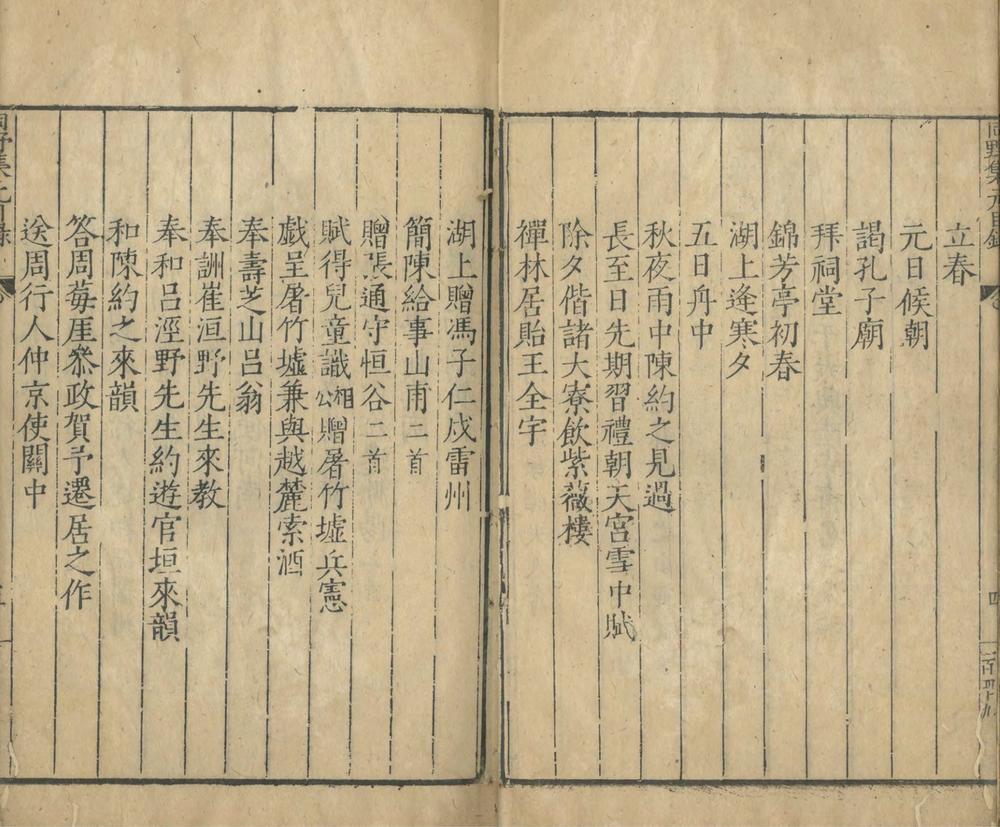 立春
元日候朝
謁孔子廟
拜祠堂
錦芳亭初春
湖上逢寒夕
五日舟中
秋夜雨中陳約之見過
長至日先期習禮朝天宮雪中賦
除夕偕諸大寮飲紫薇樓
禪林居貽王全宇
湖上贈馮子仁戍雷州
簡陳給事山甫二首
贈張通守恒谷二首
賦得兒童識相公贈屠竹墟兵憲
戲呈屠竹墟兼與越麓索酒
奉壽芝山呂翁
奉詶崔洹野先生來教
奉和呂涇野先生約遊官垣來韻
和陳約之來韻
答周莓厓叅政賀予遷居之作
送周行人仲京使關中